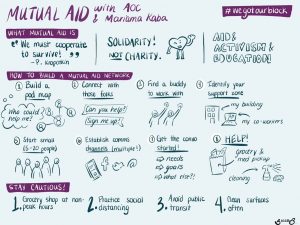 MUTUAL AID with AOC
& Mariame Kaba
#wegotourblock
WHAT MUTUAL AID IS
"We must cooperate
to survive!"
- P. Kropotkin
SOLIDARITY!
NOT CHARITY.
AID &
ACTIVISM &
EDUCATION!
HOW TO BUILD A MUTUAL AID NETWORK
1 Build a
pod map
Who could
help me?
2 Connect with
those folks
Can you help?
Sign me up!
3 Find a buddy
to work with
4 Identify your
support zone
my building
my co-workers
5 Start small
(5-20 people)
6 Establish comms
channels (multiple!)
7 Get the convo
started!
→ needs
→ goals
→ what's first
8 HELP!
grocery &
med pickup
cleaning
STAY CAUTIOUS!
1. Grocery shop at non-
peak hours
2. Practice social
distancing
3. Avoid public
transit
4. Clean surfaces
often